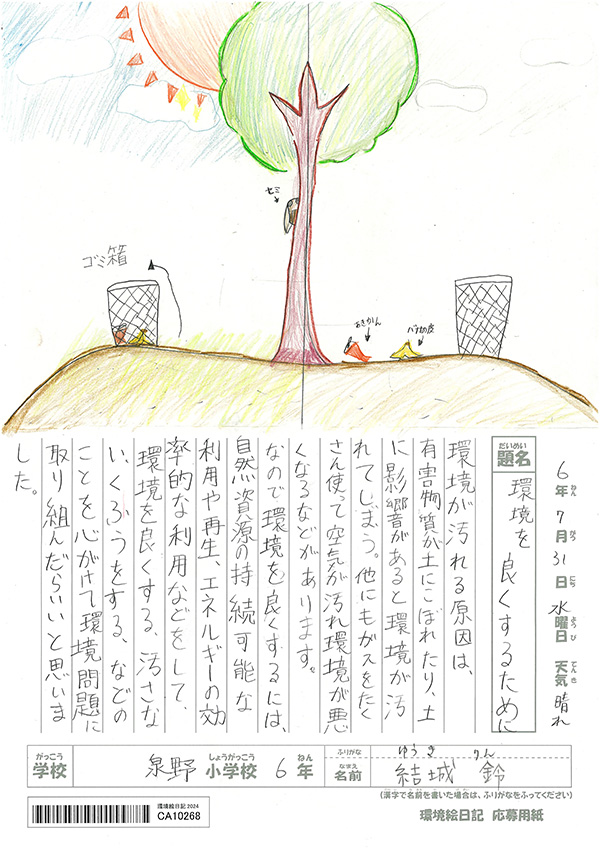 セミ
ゴミ箱
あきかん
バナナの皮
6年 7月 31日 水曜日 天気 晴れ
ねん がつ にち ようび てんき
だいめい
題名
環境を良くするために
環境が汚れる原因は、
有害物質が土にこぼれたり、土
に影響があると環境が汚
れてしまう。他にもガスをたく
さん使って空気が汚れ環境が悪
くなるなどがあります。
なので環境を良くするには、
自然資源の持続可能な
利用や再生、エネルギーの効
率的な利用などをして、
環境を良くする、汚さな
いくふうをする、などの
ことを心がけて環境問題に
取り組んだらいいと思いま
した。
がっこう しょうがっこう ねん
学校 泉野 小学校 6年
ふりがな ゆうき りん
なまえ
名前 結城 鈴
(漢字で名前を書いた場合は、ふりがなをふってください)
環境絵日記 2024
CA10268
環境絵日記 応募用紙